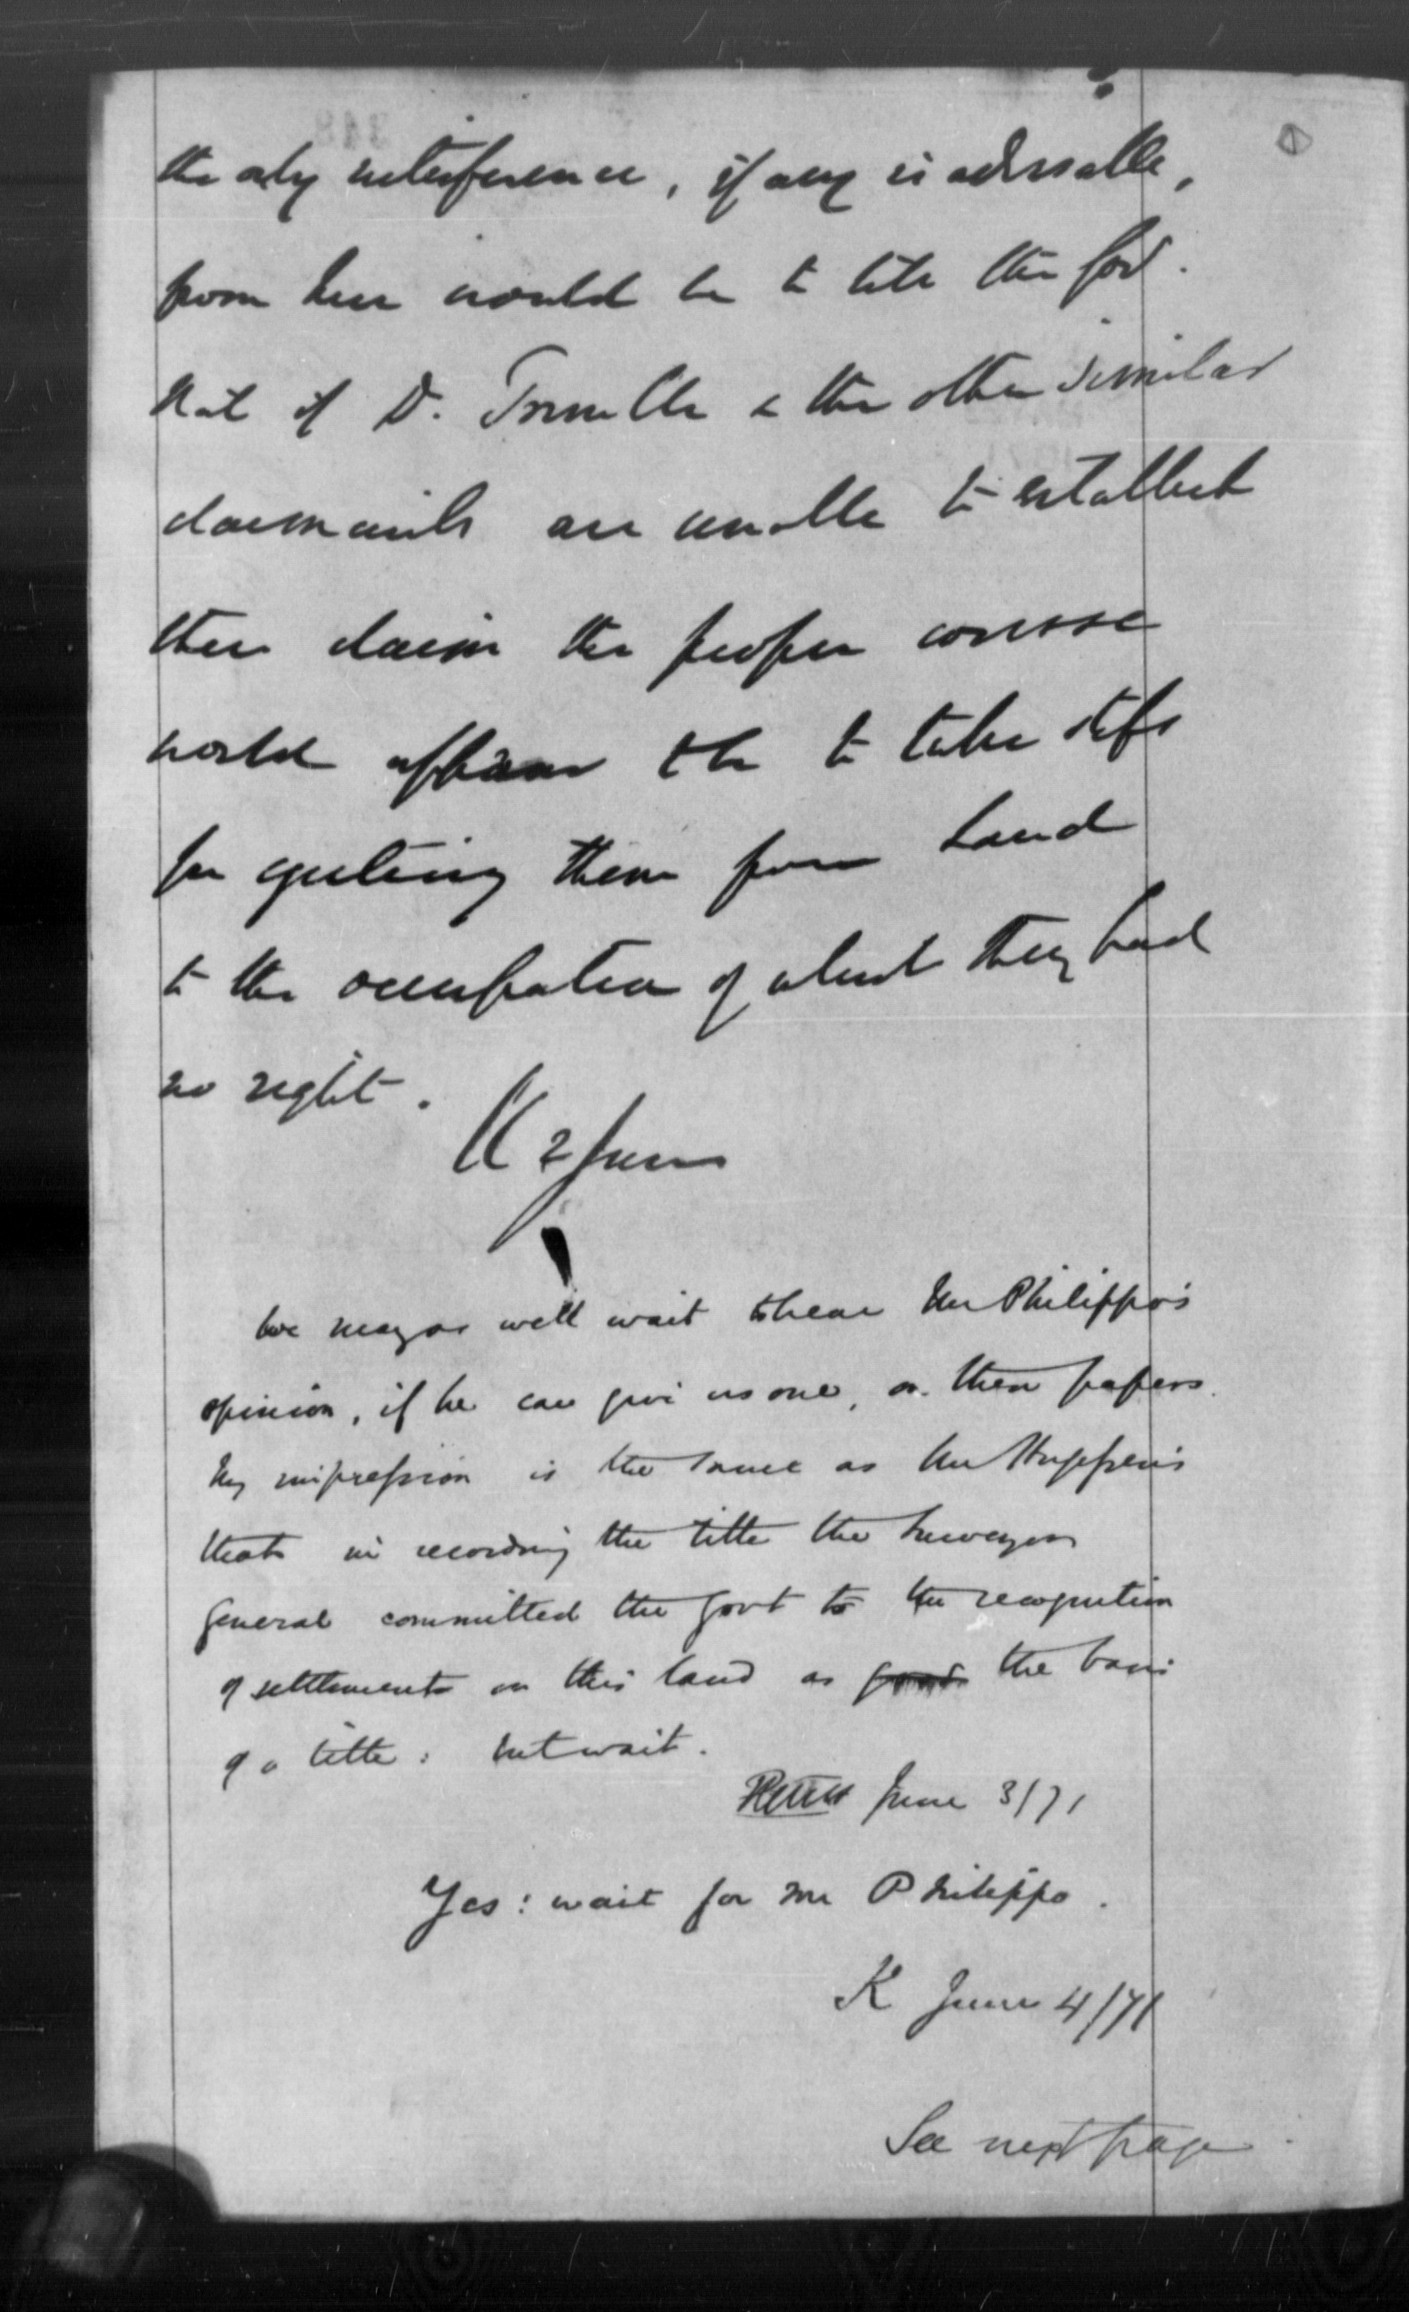 the only interference, if any is advisable,
from here would be to tell the Gov.
that if D. Trimble & the other similar
claimants are unable to establish
their claim the proper course
would appear to be to take steps
for ejecting them from land
to the occupation of which they had
no right.
2 June
We may as well wait to hear Mr Philippo's
opinion, if he can give us one, on these papers.
My impression is the same as Mr
that in recording the title the Surveyor
General committed the Govt to the recognition
of settlements on this land as the basis
of a title: but wait.
June 3/71
Yes: wait for Mr Philippo.
K June 4/71
See next page